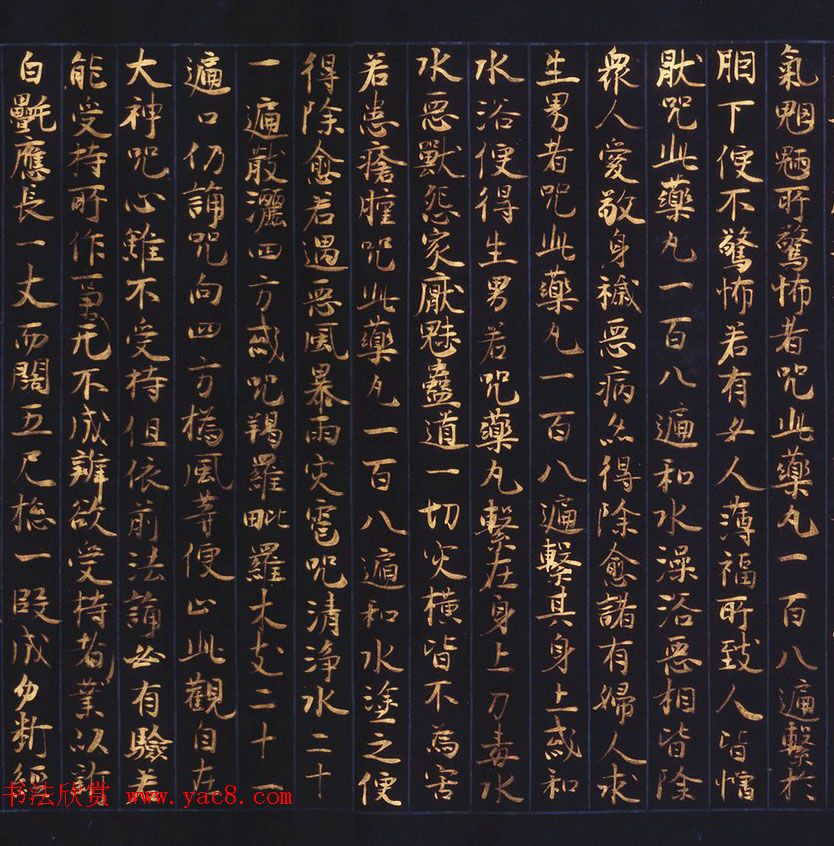 氣魍魎所驚怖者咒此藥丸一百八遍繫於
胭下便不驚怖若有女人薄福所致人皆憎
猒咒此藥丸一百八遍和水澡浴惡相皆除
衆人愛敬身穢惡病亦得除愈諸有婦人求
生男者咒此藥丸一百八遍繫其身上或和
水浴便得生男若咒藥丸繫在身上刀毒水
水惡獸怨家厭魅蠱道一切災橫皆不為害
若患瘡腫咒此藥丸一百八遍和水塗之便
得除愈若遇惡風暴雨災雹咒清淨水二十
一遍散灑四方或咒羯羅毗羅木支二十一
遍口仍誦咒向四方撝風等便止此觀自在
大神咒心雖不受持但依前法誦必有驗若
能受持所作事无不成辦欲受持者業以
白氎應長一丈而闊五尺揔一段成勿斷經
书法欣赏 www.yac8.com